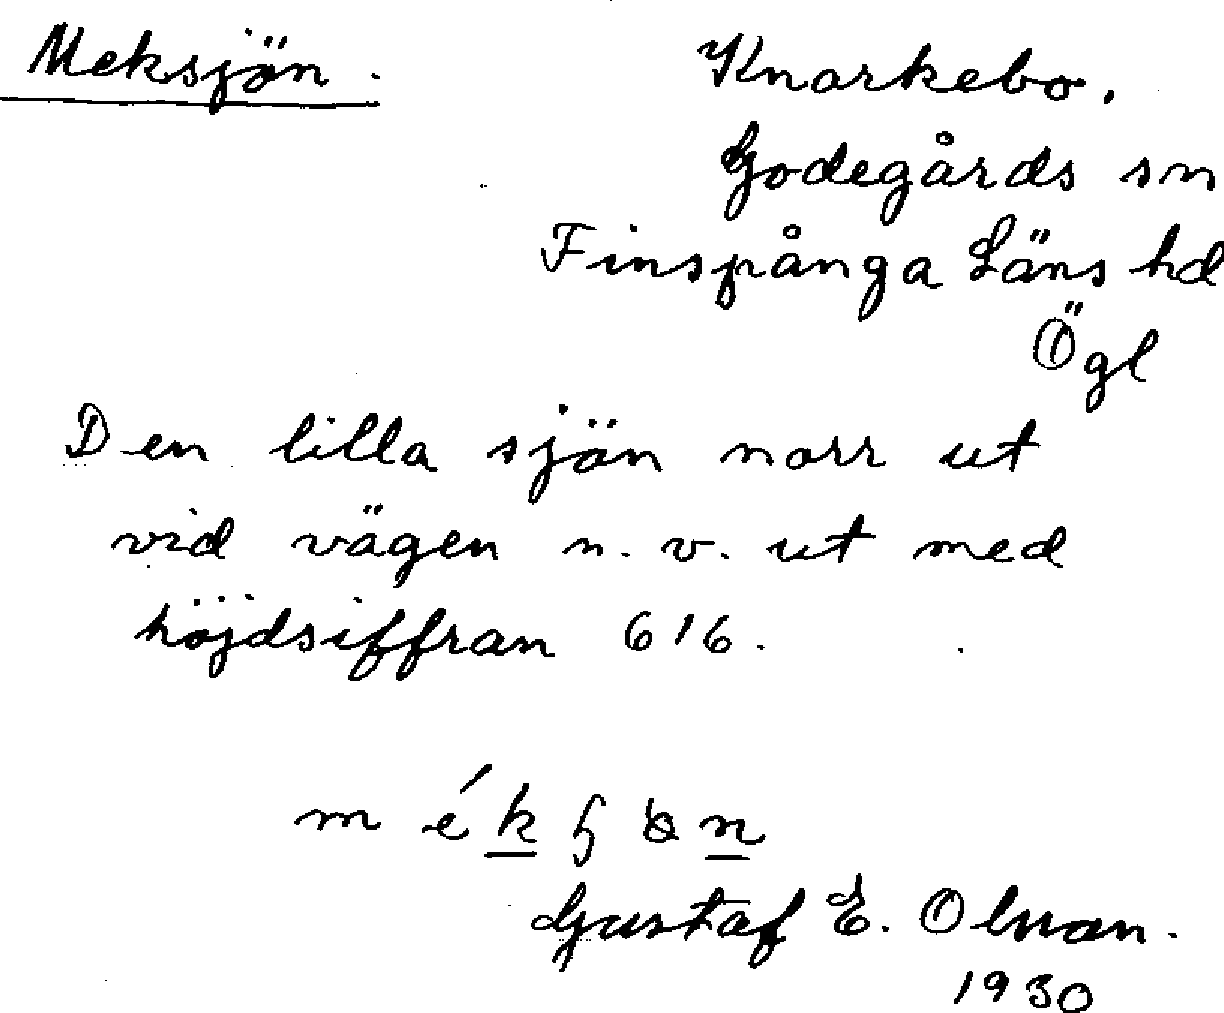 Meksjön.
Knarkebo.
Godegårds sn
Finspånga Läns hd
Ögl
Den lilla sjön norr ut
vid vägen n. v. ut med
höjdsiffran 616.
Gustaf E. Olnan.
1930